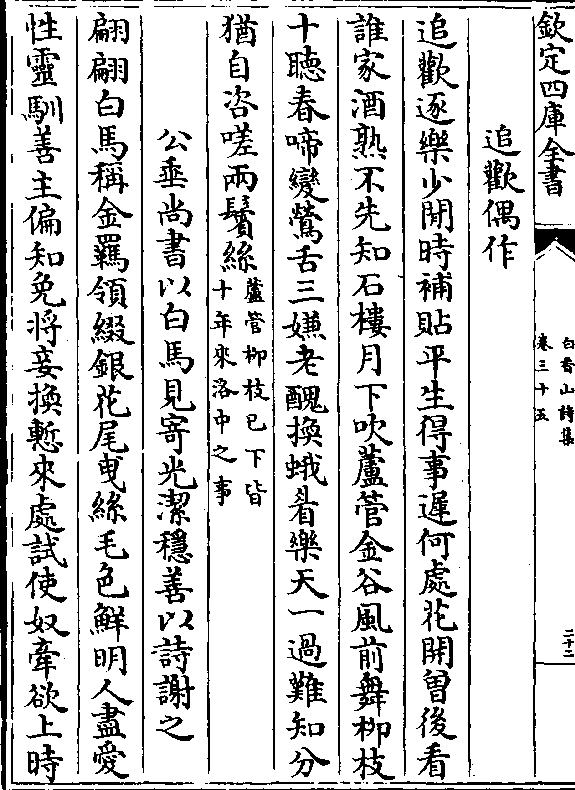 欽定四庫全書
白香山詩集
卷三十五
二十二
追歡偶作
追歡逐樂少閒時補貼平生得事遲何處花開曽後看
誰家酒熟不先知石樓月下吹蘆管金谷風前舞柳枝
十聴春啼變鶯舌三嫌老醜換蛾眉樂天一過難知分
猶自咨嗟兩鬢絲蘆管柳枝已下皆
十年來洛中之事
公垂尚書以白馬見寄光潔穩善以詩謝之
翩翩白馬稱金羈領綴銀花尾曳絲毛色鮮明人盡愛
性靈馴善主偏知免將妾換慙來處試使奴牽欲上時